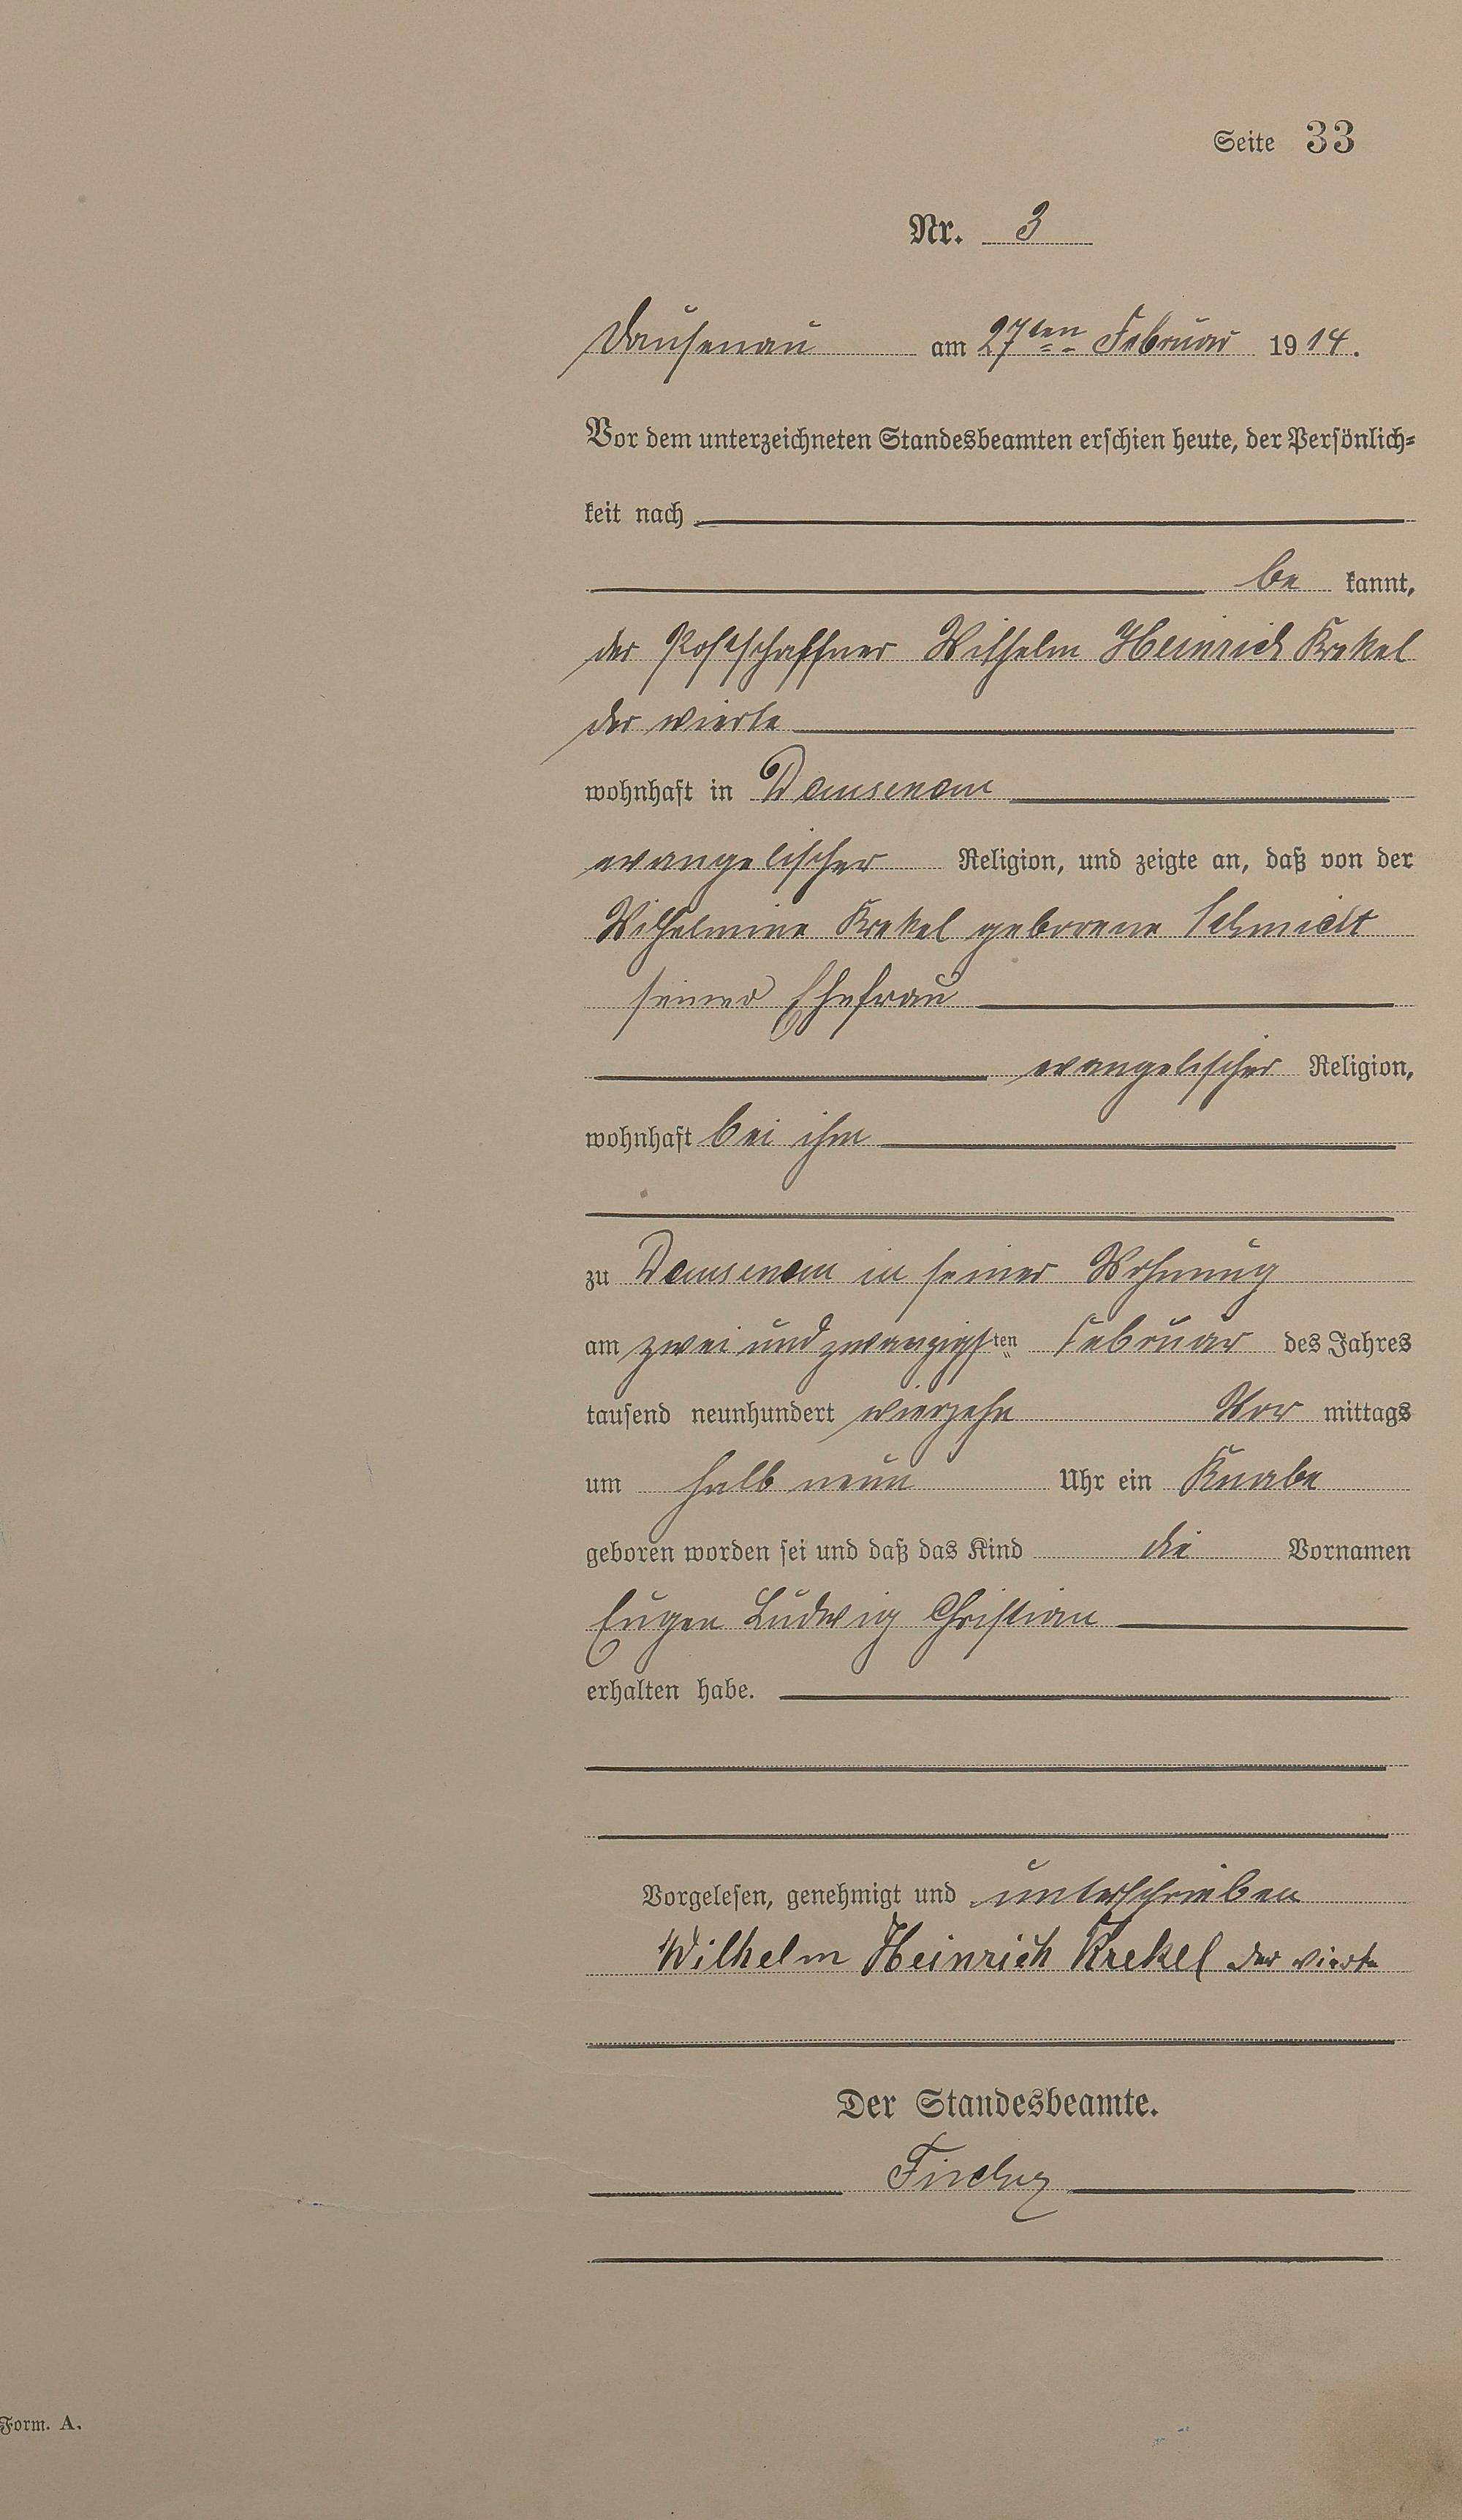 Seite 33
Nr. 3
Dausenau am 27ten Februar 1914.
Vor dem unterzeichneten Standesbeamten erschien heute, der Persönlich-
keit nach
be kannt,
der Postschaffner Wilhelm Heinrich Krekel
der vierte
wohnhaft in Dausenau
evangelischer Religion, und zeigte an, daß von der
Wilhelmine Krekel geborene Schmidt
seiner Ehefrau
evangelischer Religion,
wohnhaft bei ihm
zu Dausenau in seiner Wohnung
am zwei und zwanzigsten Februar des Jahres
tausend neunhundert vierzehn Vor mittags
um halb neun Uhr ein Knabe
geboren worden sei und daß das Kind die Vornamen
Eugen Ludwig Christian
erhalten habe.
Vorgelesen, genehmigt und unterschrieben
Wilhelm Heinrich Krekel der vierte
Der Standesbeamte.
Form. A.